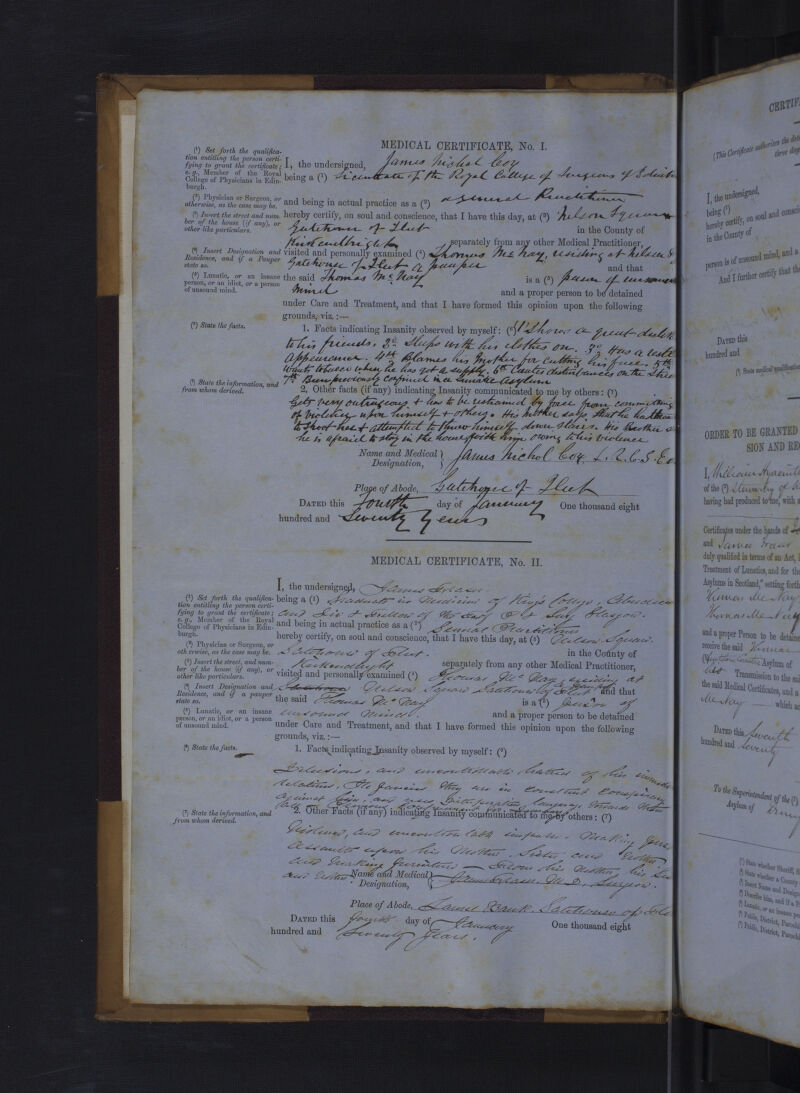 MEDICAL CERTIFICATE, No. I.
(¹) Set forth the qualifica-
tion entitling the person certi-
fying to grant the certificate;
e.g., Member of the Royal
College of Physicians in Edin-
burgh.
I, the undersigned, James Nichol Coy
being a (¹) Licentiate of the Royal College of Surgeons of Edinbr
(²) Physician or Surgeon, or
otherwise, as the case may be.
and being in actual practice as a (²) a general Practitioner
(³) Insert the street and num-
ber of the house (if any), or
other like particulars.
hereby certify, on soul and conscience, that I have this day, at (³) Nelson Square
Gatehouse of Fleet in the County of
Kirkcudbright separately from any other Medical Practitioner,
(⁴) Insert Designation and
Residence, and if a Pauper
state so.
visited and personally examined (⁴) Thomas McNay, residing at Nelson S
Gatehouse of Fleet a pauper and that
(⁵) Lunatic, or an insane
person, or an idiot, or a person
of unsound mind.
the said Thomas McNay is a (⁵) person of unsound
mind and a proper person to be detained
under Care and Treatment, and that I have formed this opinion upon the following
grounds, viz.:—
(⁶) State the facts.
1. Facts indicating Insanity observed by myself: (⁶) 1st Shows a great dislike
to his friends. 2d Sleeps with his clothes on. 3d Has a
appearance. 4th Blames his Mother for cutting his face. 5th
Wants tobacco when he has got a supply. 6th Causes disturbances on the Stree
7th Been previously confined in a Lunatic Asylum
(⁷) State the information, and
from whom derived.
2. Other facts (if any) indicating Insanity communicated to me by others: (⁷)
Gets very outrageous & has to be restrained by force from committing
of violence upon himself & others. His Mother says that he had
to shoot her & attempted to throw himself down stairs. His brother
he is afraid to stay in the house with him owing to his violence
Name and Medical Designation, James Nichol Coy L.R.C.S.E
Place of Abode, Gatehouse of Fleet
DATED this Fourth day of January One thousand eight
hundred and Seventy Years
MEDICAL CERTIFICATE, No. II.
I, the undersigned, James
(¹) Set forth the qualifica-
tion entitling the person certi-
fying to grant the certificate;
e.g., Member of the Royal
College of Physicians in Edin-
burgh.
being a (¹) Graduate in Medicine of Kings College, Aberdeen
and Lic & Fellow of the Fac P & Surg Glasgow.
and being in actual practice as a (²) General Practitioner
(²) Physician or Surgeon, or
otherwise, as the case may be.
hereby certify, on soul and conscience, that I have this day, at (³) Nelson Square.
Gatehouse of Fleet. in the County of
(³) Insert the street, and num-
ber of the house (if any), or
other like particulars.
Kirkcudbright separately from any other Medical Practitioner,
visited and personally examined (⁴) Thomas McNay residing at
(⁴) Insert Designation and
Residence, and if a pauper
state so.
Nelson Square Gatehouse of Fleet Pauper and that
the said Thomas McNay is a (⁵) Person of
(⁵) Lunatic, or an insane
person, or an idiot, or a person
of unsound mind.
unsound mind. and a proper person to be detained
under Care and Treatment, and that I have formed this opinion upon the following
grounds, viz.:—
(⁶) State the facts.
1. Facts indicating Insanity observed by myself: (⁶)
Delusions, and uncontrollable hatred of his
relations. He fancies they are in constant conspiracy
against him, and uses language towards
(⁷) State the information, and
from whom derived.
2. Other Facts (if any) indicating Insanity communicated to me by others: (⁷)
Violence, and uncontrollable impulse. Making
assaults upon his Mother, Sister and Brother
and breaking furniture — From his Mother, his
and Sister.
Name and Medical Designation, M.D. Surgeon.
Place of Abode, Laurel Bank. Gatehouse of Fle
DATED this fourth day of January One thousand eight
hundred and Seventy Years.
CERTIF
(This Certificate authorises the
three days
I, the undersigned,
being (¹)
hereby certify, on soul and consci
in the County of
person is of unsound mind, and a
And I further certify that the
DATED this
hundred and
(¹) State medical qualification
ORDER TO BE GRANTED
SION AND RE
I, William
of the (¹) Stewartry of
having had produced to me, with a
Certificates under the hands of
and James
duly qualified in terms of an Act,
Treatment of Lunatics, and for the
Asylums in Scotland," setting forth
Thomas McNay
Thomas McNay
and a proper Person to be detained
receive the said Thomas
Asylum of
Transmission to the said
the said Medical Certificates, and a
McNay — which ac
DATED this Seventh
hundred and Seventy
To the Superintendent of the (⁷)
Asylum of
(¹) State whether Sheriff, S
(²) State whether a County
(³) Insert Name and Design
(⁴) Describe him, and if a P
(⁵) Lunatic, or an insane per
(⁶) Public, District, Paroch
(⁷) Public, District, Parochi